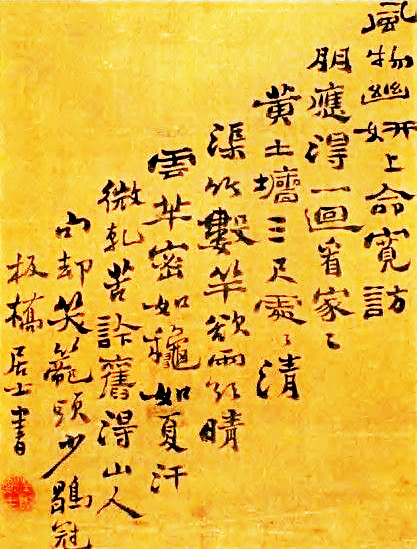 風物幽妍上命寬訪
朋應得一迴看家〻
黃土墻三尺處〻清
渠竹數竿欲雨欲晴
雲半密如龝如夏汗
微乾苦訡舊得山人
句却笑籠頭少鶡冠
板橋居士書